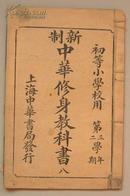 初等小學校用
第二學年
三期
新制中華修身教科書八
上海中華書局發行